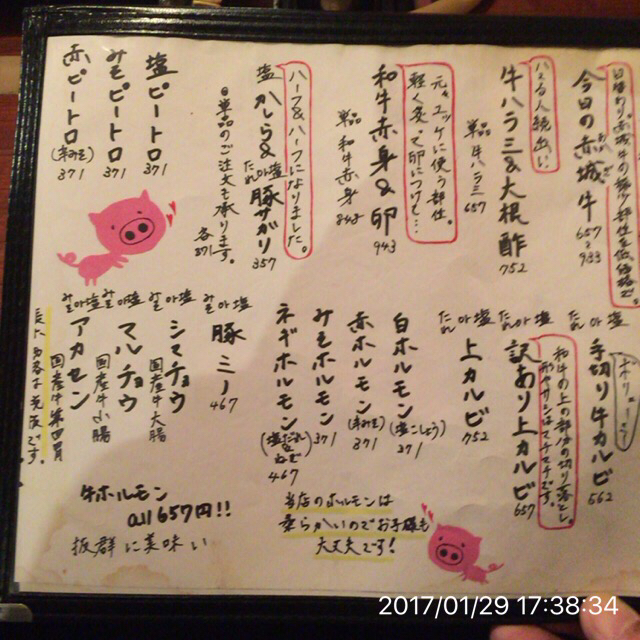 日替わり赤城牛の希少部位を低価格で
今日の赤城牛
657~933
ハマる人続出い
牛ハラミ&大根酢
752
単品 牛ハラミ 657
元々ユッケに使う部位。
軽く炙って卵につけて…
和牛赤身&卵
943
単品 和牛赤身 843
ハーフ&ハーフになりました。
塩 かしら&豚サガリ
たれor塩
357
単品のご注文も承ります。
各371
塩ピートロ
371
みそピートロ
371
赤ピートロ
(辛みそ)
371
ボリューミー
たれor塩
手切り牛カルビ
562
和牛の上の部分の切り落とし。
たれor塩
訳あり上カルビ
657
たれor塩
上カルビ
752
白ホルモン
(塩こしょう)
371
赤ホルモン
(辛みそ)
371
みそホルモン
371
ネギホルモン
467
みそor塩
豚ミノ
467
みそor塩
シマチョウ
国産牛大腸
みそor塩
マルチョウ
国産牛小腸
みそor塩
アカセン
国産牛第四胃
牛ホルモン
all 657円!!
抜群に美味い
当店のホルモンは
柔らかいのでお子様も
大丈夫です!
2017/01/29 17:38:34